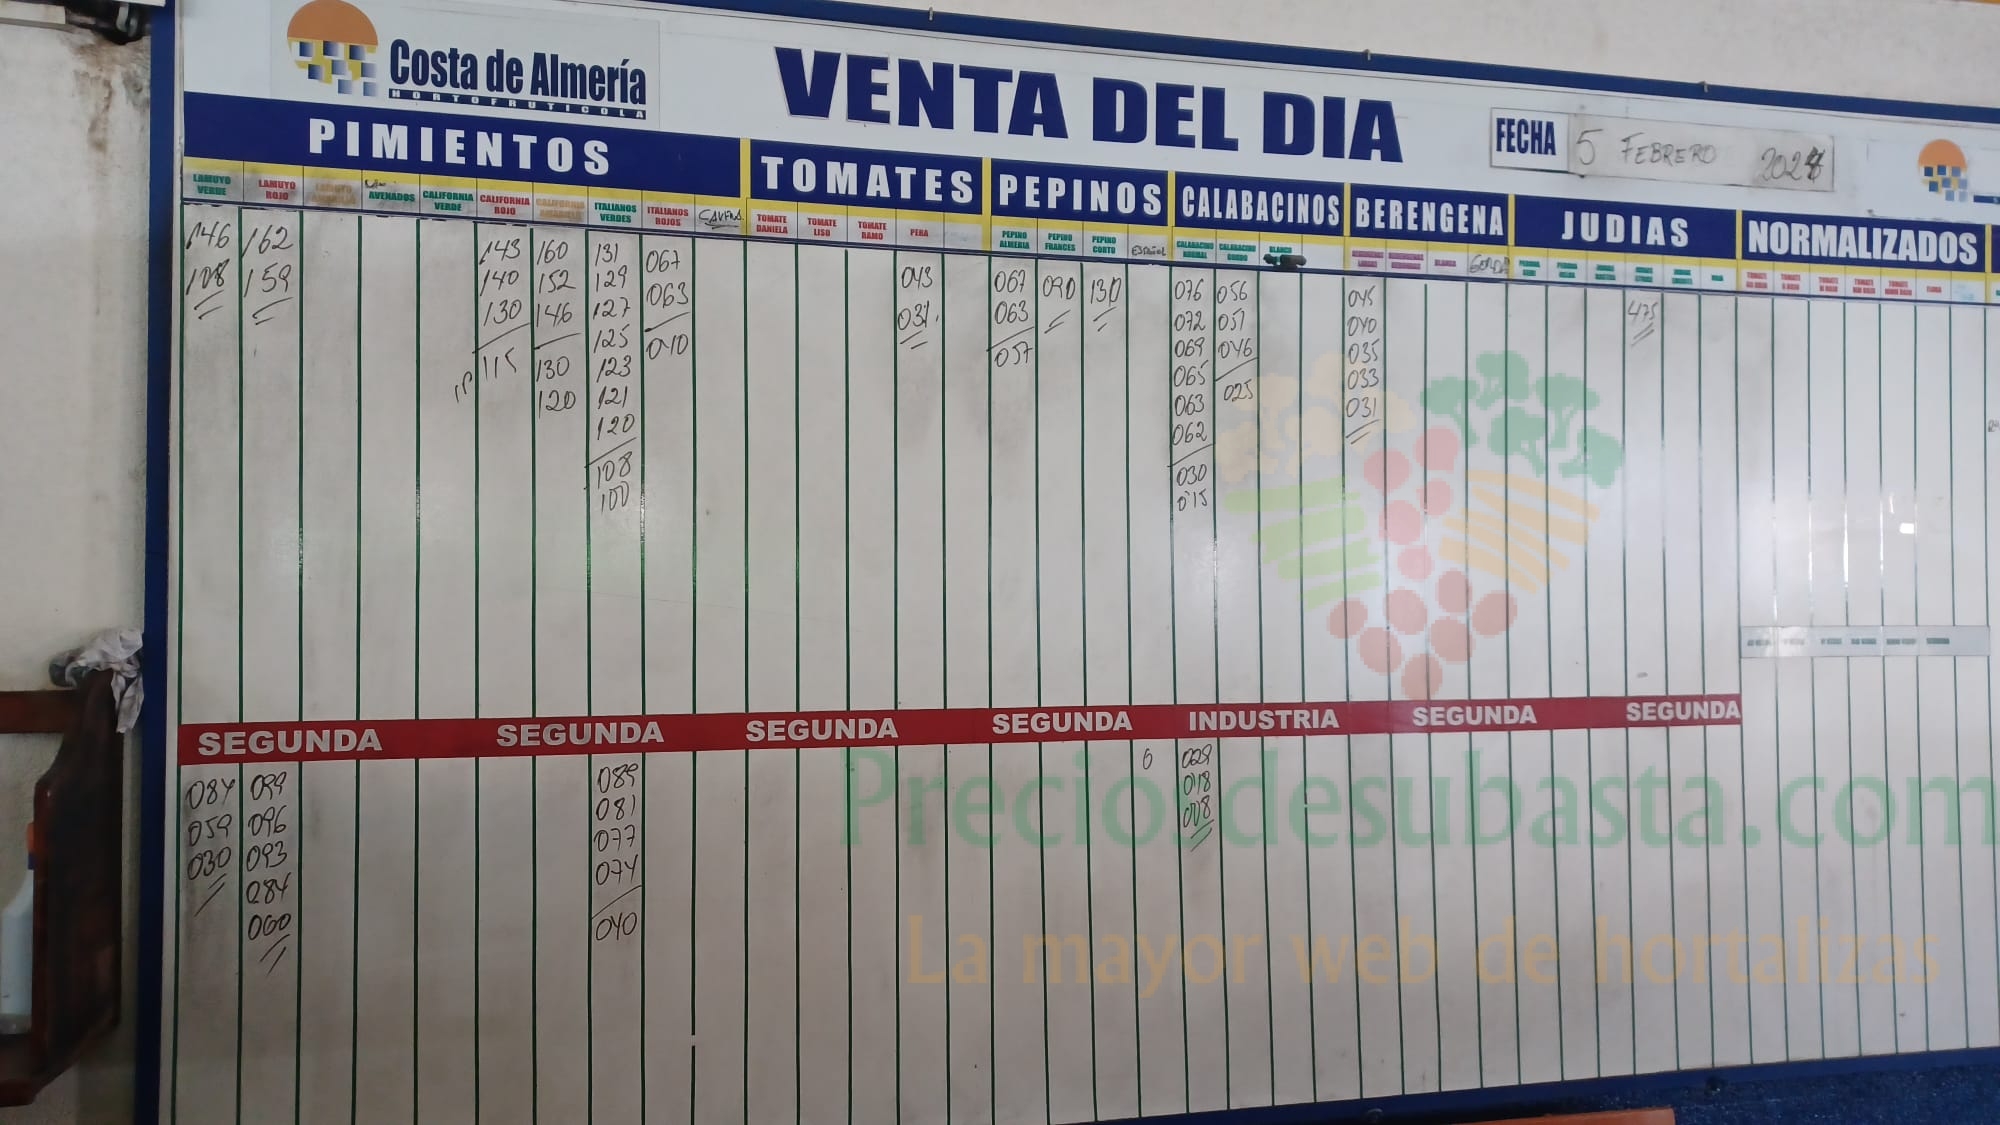 Costa de Almería
HORTOFRUTICOLA
VENTA DEL DIA
FECHA 5 FEBRERO 2024
PIMIENTOS TOMATES PEPINOS CALABACINOS BERENGENA JUDIAS NORMALIZADOS
LAMUYO VERDE
LAMUYO ROJO
AVENADOS
CALIFORNIA VERDE
CALIFORNIA ROJO
CALIFORNIA AMARILLO
ITALIANOS VERDES
ITALIANOS ROJOS
TOMATE DANIELA
TOMATE LISO
TOMATE RAMO
PERA
PEPINO ALMERIA
PEPINO FRANCES
PEPINO CORTO
ESPAÑOL
CALABACINO NORMAL
CALABACINO GORDO
BLANCO
BLANCA
GORDA
146
108
162
159
143
140
130
115
160
152
146
130
120
131
129
127
125
123
121
120
108
100
067
063
040
043
031
067
063
057
090
130
076
072
069
065
063
062
030
015
056
051
046
025
045
040
035
033
031
475
SEGUNDA SEGUNDA SEGUNDA SEGUNDA INDUSTRIA SEGUNDA SEGUNDA
084
059
030
099
096
093
084
060
089
081
077
074
040
6
029
018
008
Preciosdesubasta.com
La mayor web de hortalizas